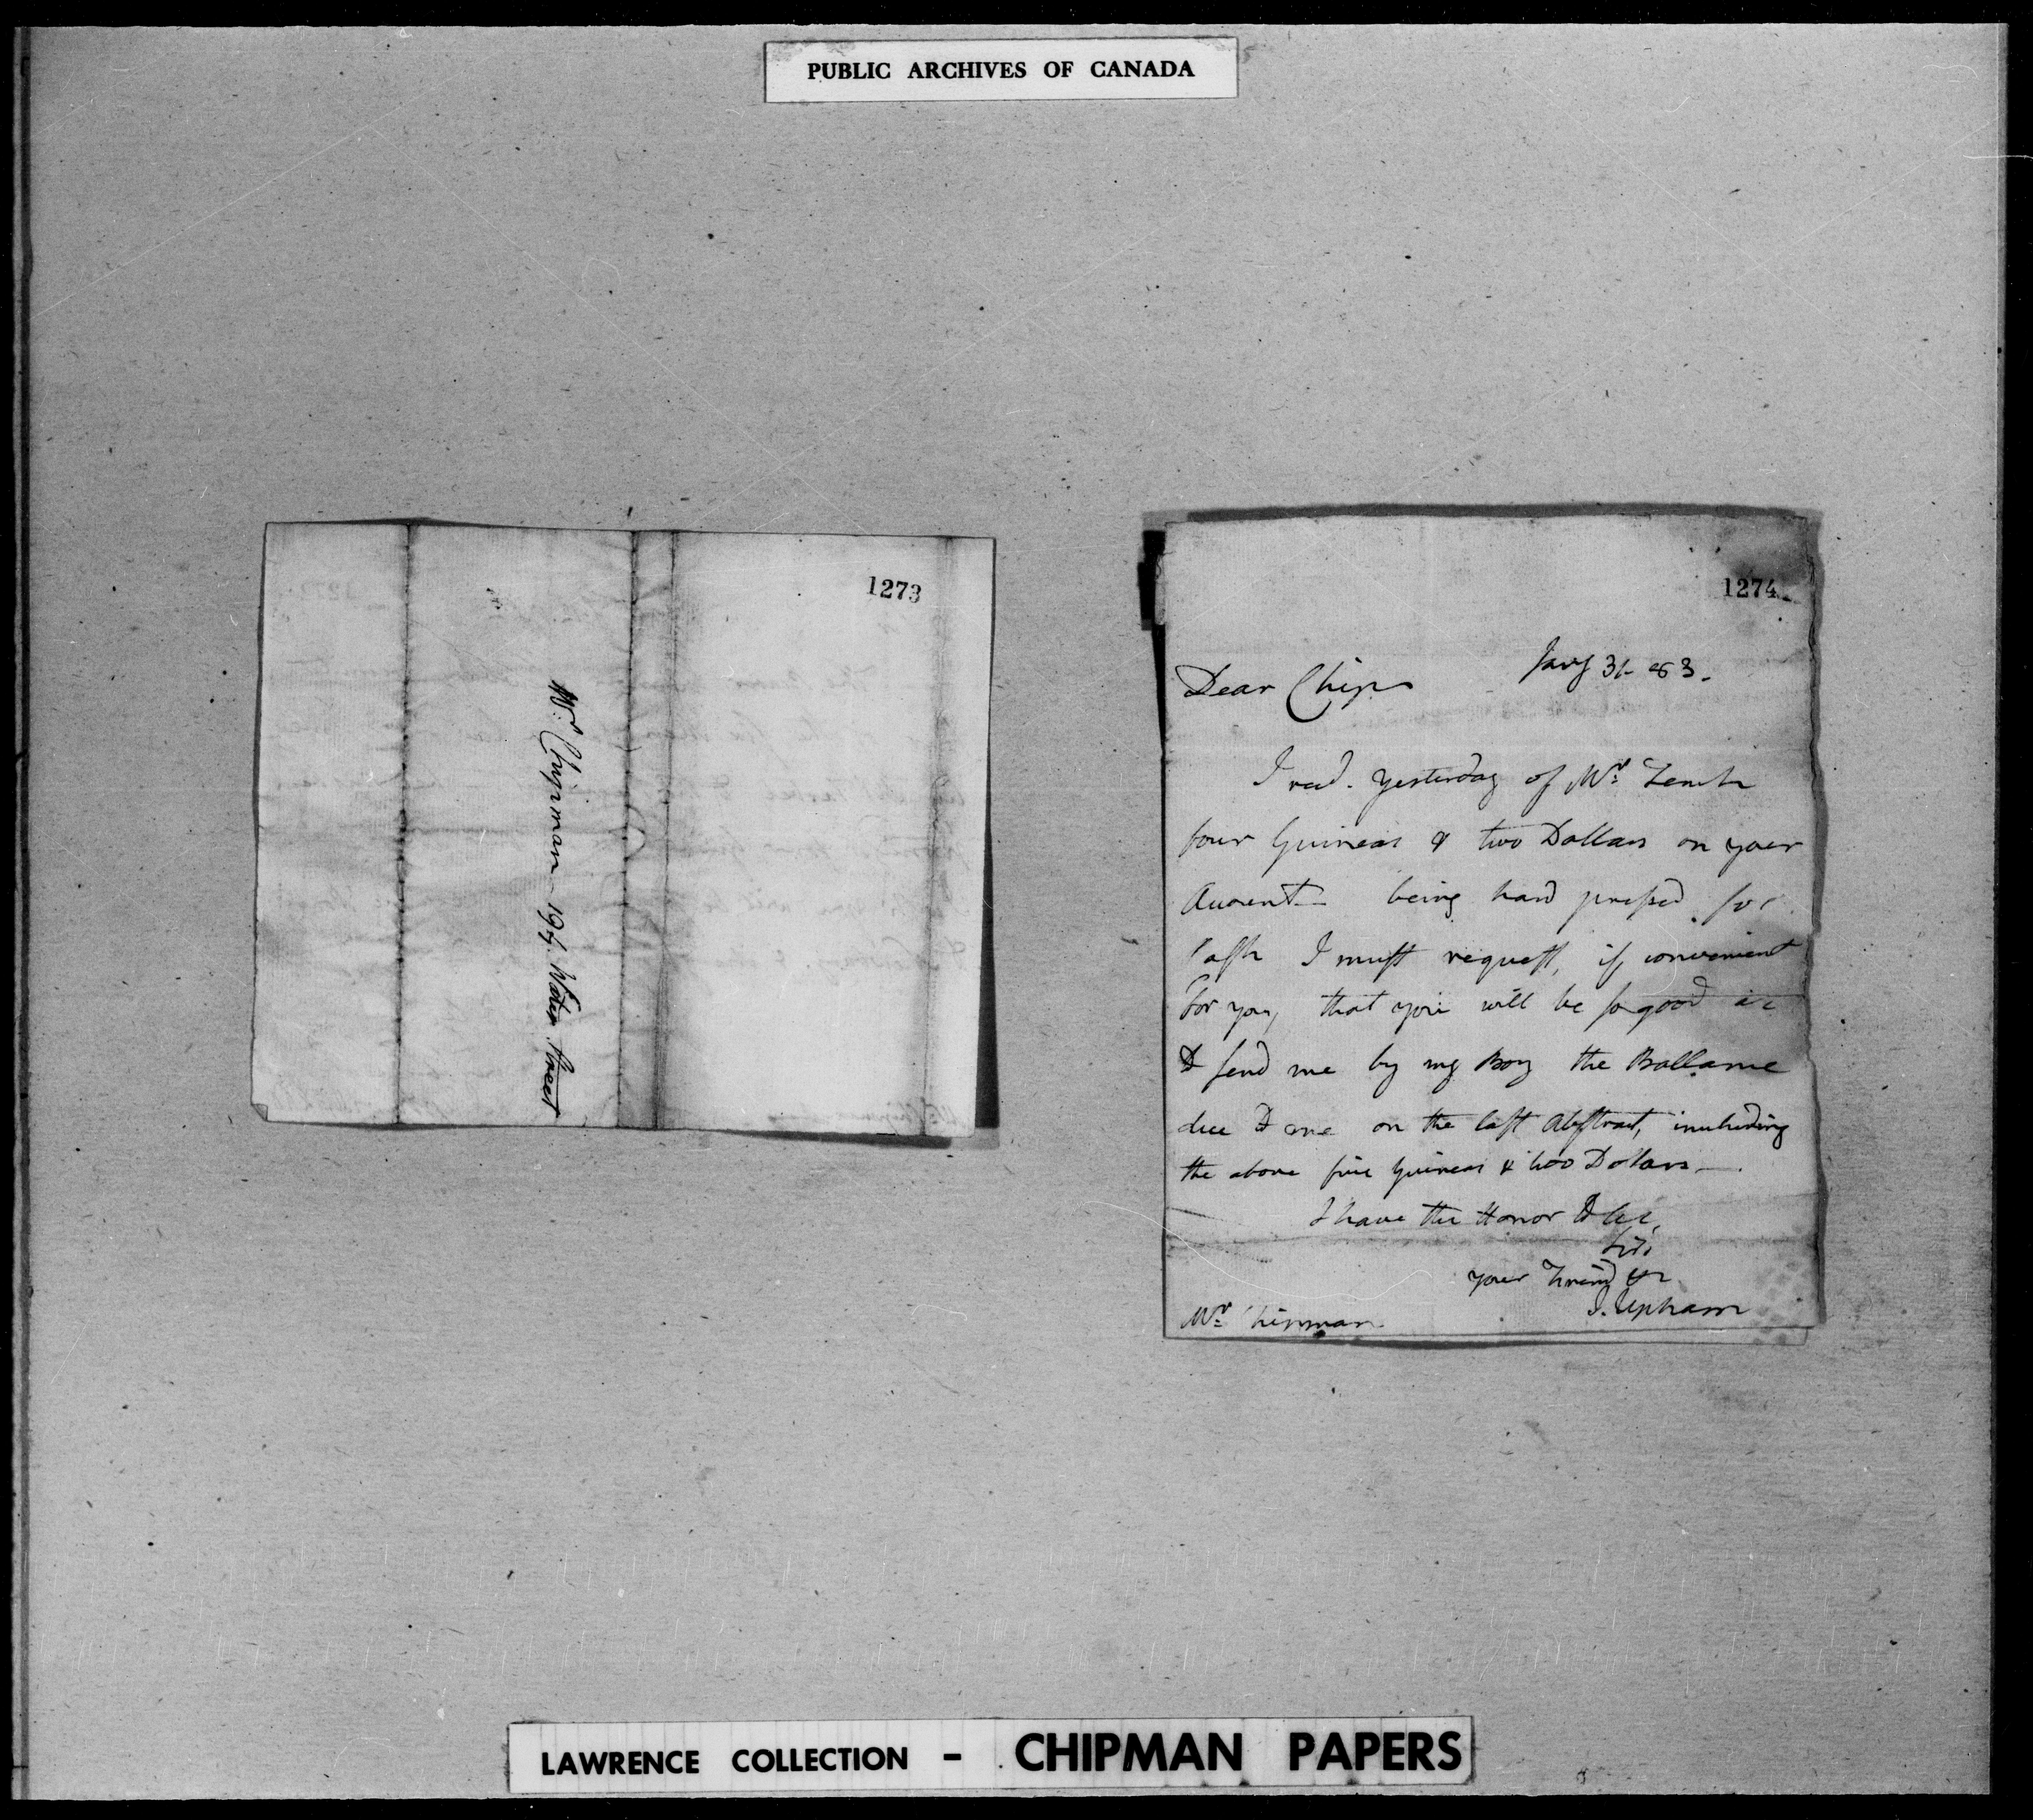 PUBLIC ARCHIVES OF CANADA
1273
Mr. Chipman - 194. Water Street
1274
Jany 31 - 83.
Dear Chip
I recd. yesterday of Mr.
four Guineas & two Dollars on your
Account - being hard pressed for
Cash I must request, if convenient
for you, that you will be so good as
to send me by my Boy the Ballance
due to me on the last Abstract, including
the above five Guineas & two Dollars -
I have the Honor to be,
Sir,
your Friend &c
J. Upham
Mr. Chipman
LAWRENCE COLLECTION - CHIPMAN PAPERS